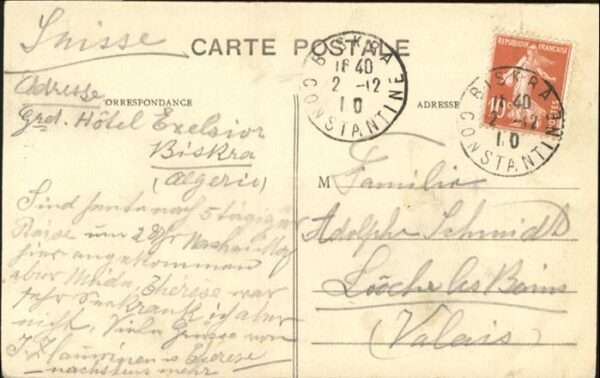 Suisse
CARTE POSTALE
Adresse
ORRESPONDANCE
ADRESSE
Grd. Hôtel Excelsior
Biskra
(Algerie)
Sind heute nach 5 tägiger
Reise um 2 Uhr Nachmittag
hier angekommen
aber müde, Therese war
sehr seekrank ich aber
nicht. Viele Grüsse von
u Therese
nächstens mehr
M Familie
Adolphe Schmidt
Löèche les Bains
(Valais)
BISKRA
16 40
2 -12
10
CONSTANTINE
REPUBLIQUE FRANÇAISE
10
POSTES
BISKRA
16 40
2 -12
10
CONSTANTINE